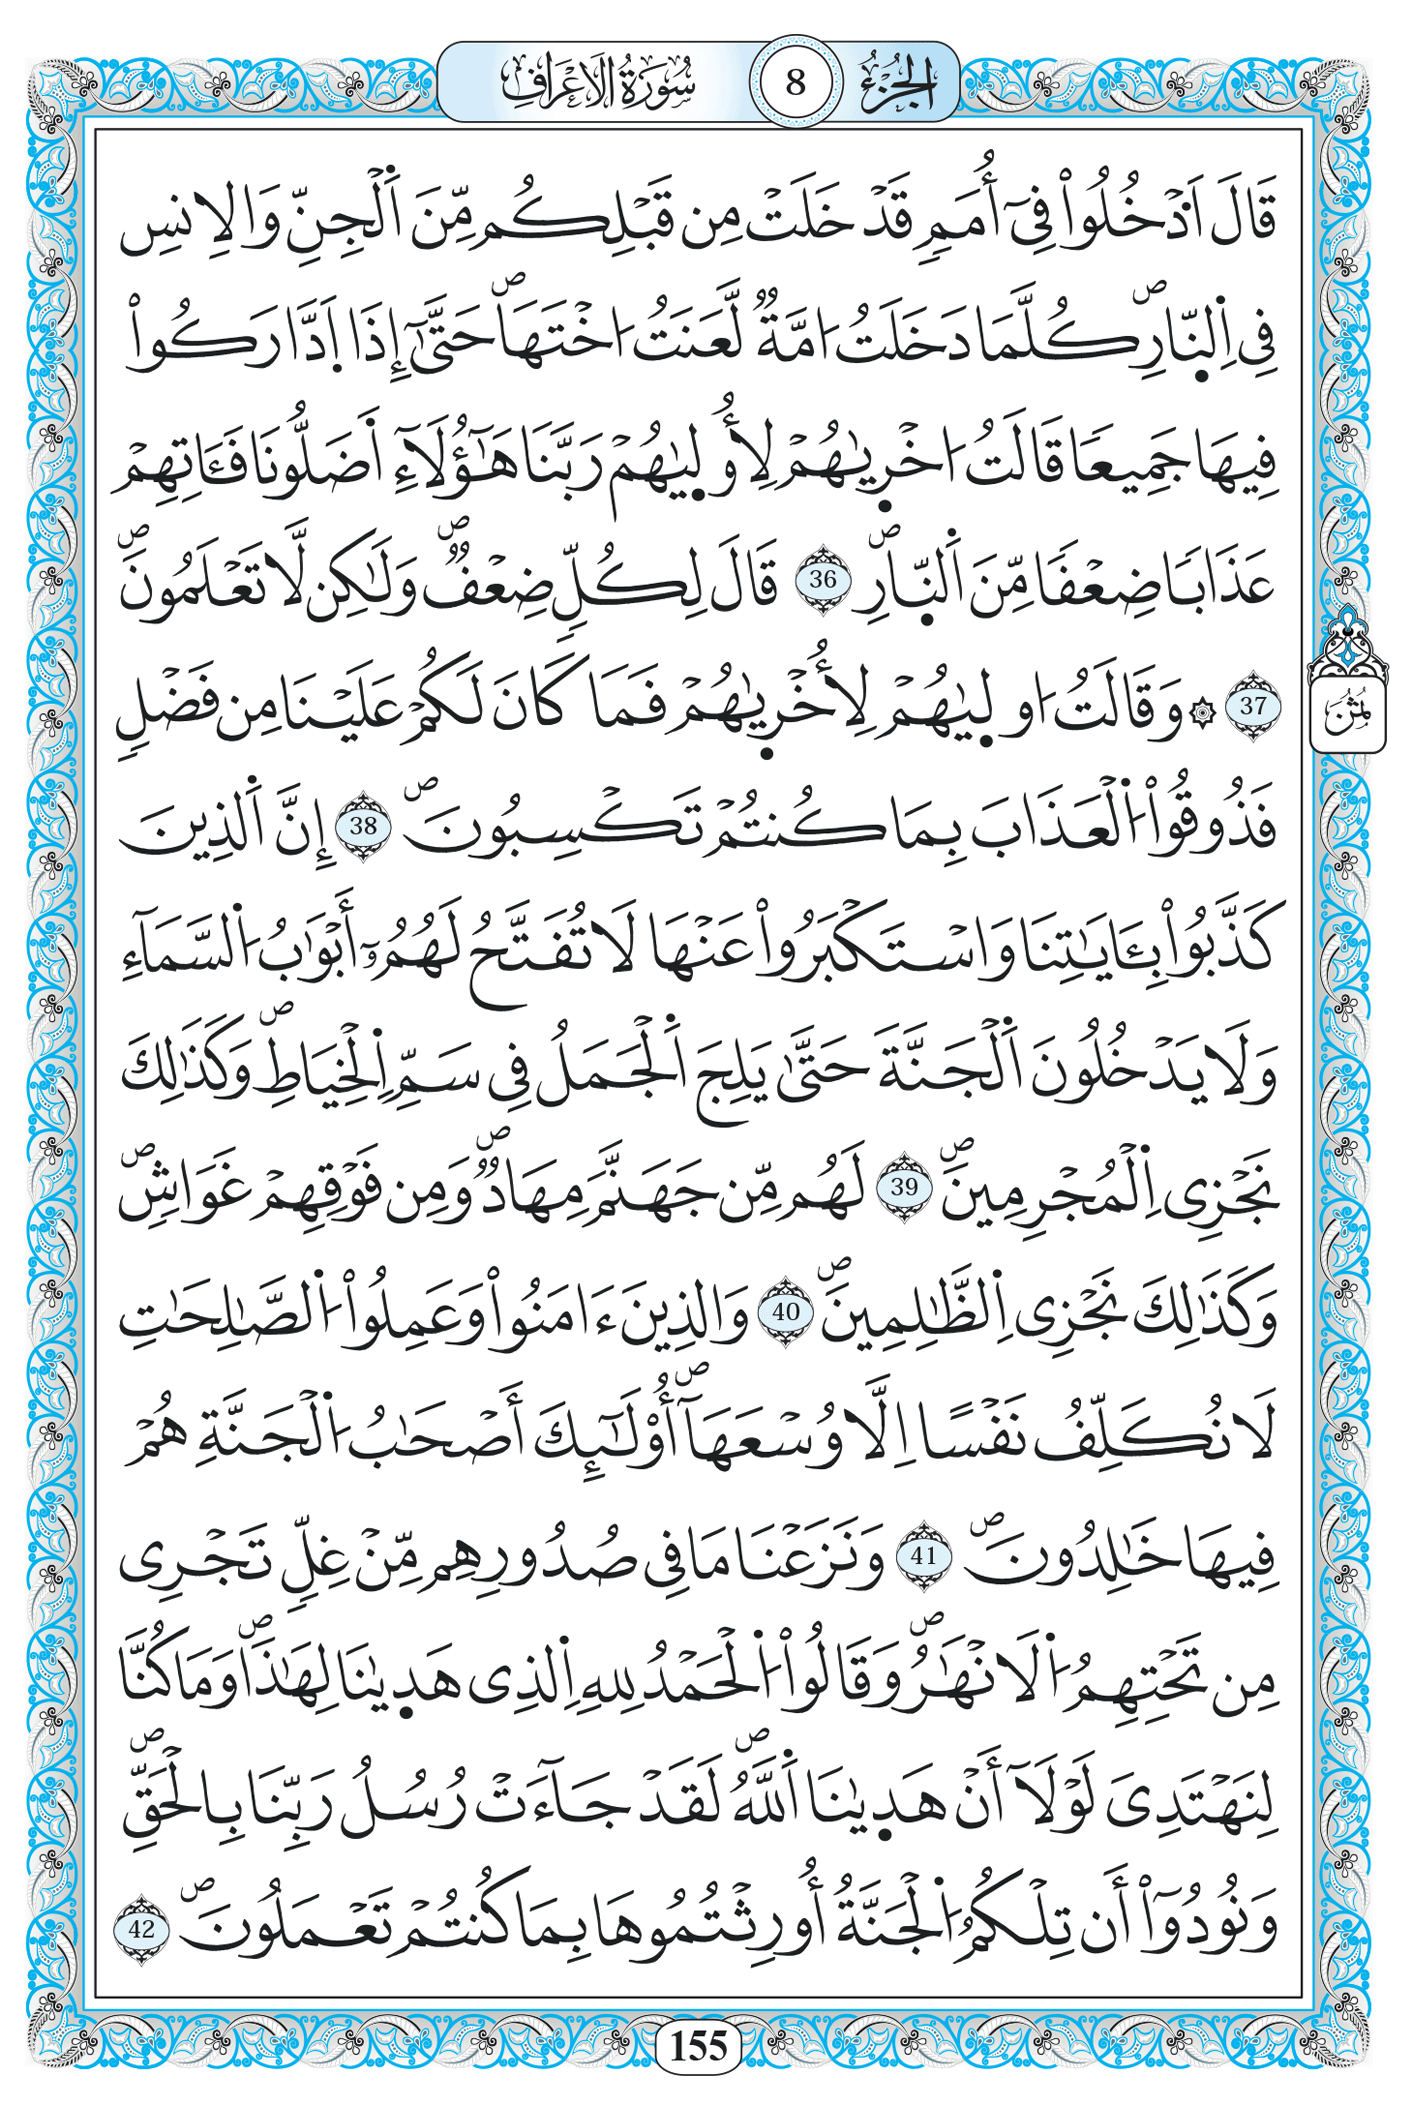 الجزء 8 سورة الاعراف
قَالَ اَدْخُلُواْ فِےٓ أُمَمٖ قَدْ خَلَتْ مِن قَبْلِكُم مِّنَ اَ۬لْجِنِّ وَالِانسِ
فِے اِ۬لنّ۪ارِۖ كُلَّمَا دَخَلَتُ ا۟مَّةٞ لَّعَنَتُ ا۟خْتَهَاۖ حَتَّىٰٓ إِذَا اَ۪دَّارَكُواْ
فِيهَا جَمِيعٗا قَالَتُ ا۟خْر۪يٰهُمْ لِأُول۪يٰهُمْ رَبَّنَا هَٰٓؤُلَآءِ اَ۬ضَلُّونَا فَـَٔاتِهِمْ
عَذَابٗا ضِعْفٗا مِّنَ اَ۬لنّ۪ارِۖ 36 قَالَ لِكُلّٖ ضِعْفٞۖ وَلَٰكِن لَّا تَعْلَمُونَۖ
37 ۞ وَقَالَتُ ا۟ول۪يٰهُمْ لِأُخْر۪يٰهُمْ فَمَا كَانَ لَكُمْ عَلَيْنَا مِن فَضْلٖ
ثمن
فَذُوقُواْ اُ۬لْعَذَابَ بِمَا كُنتُمْ تَكْسِبُونَۖ 38 إِنَّ اَ۬لذِينَ
كَذَّبُواْ بِـَٔايَٰتِنَا وَاسْتَكْبَرُواْ عَنْهَا لَا تُفَتَّحُ لَهُمُۥٓ أَبْوَٰبُ اُ۬لسَّمَآءِ
وَلَا يَدْخُلُونَ اَ۬لْجَنَّةَ حَتَّىٰ يَلِجَ اَ۬لْجَمَلُ فِے سَمِّ اِ۬لْخِيَاطِۖ وَكَذَٰلِكَ
نَجْزِے اِ۬لْمُجْرِمِينَۖ 39 لَهُم مِّن جَهَنَّمَ مِهَادٞۖ وَمِن فَوْقِهِمْ غَوَاشٖۖ
وَكَذَٰلِكَ نَجْزِے اِ۬لظَّٰلِمِينَۖ 40 وَالذِينَ ءَامَنُواْ وَعَمِلُواْ اُ۬لصَّٰلِحَٰتِ
لَا نُكَلِّفُ نَفْسًا اِلَّا وُسْعَهَآۖ أُوْلَٰٓئِكَ أَصْحَٰبُ اُ۬لْجَنَّةِ هُمْ
فِيهَا خَٰلِدُونَۖ 41 وَنَزَعْنَا مَا فِے صُدُورِهِم مِّنْ غِلّٖ تَجْرِے
مِن تَحْتِهِمُ اُ۬لَانْهَٰرُۖ وَقَالُواْ اُ۬لْحَمْدُ لِلهِ اِ۬لذِے هَد۪يٰنَا لِهَٰذَاۖ وَمَا كُنَّا
لِنَهْتَدِيَ لَوْلَآ أَنْ هَد۪يٰنَا اَ۬للَّهُۖ لَقَدْ جَآءَتْ رُسُلُ رَبِّنَا بِالْحَقِّۖ
وَنُودُوٓاْ أَن تِلْكُمُ اُ۬لْجَنَّةُ أُورِثْتُمُوهَا بِمَا كُنتُمْ تَعْمَلُونَۖ 42
155